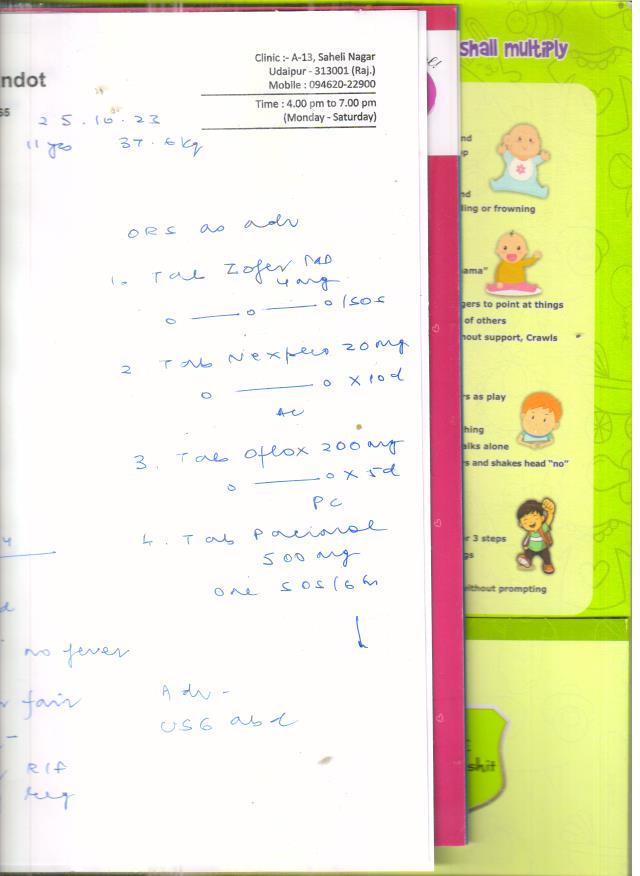 ndot
Clinic :- A-13, Saheli Nagar
Udaipur - 313001 (Raj.)
Mobile : 094620-22900
Time : 4.00 pm to 7.00 pm
(Monday - Saturday)
25.10.23
11 yrs 37.6 kg
ORS as adv
1. Tab Zofer MD
4 mg
o —— o —— o / SOS
2 Tab Nexpro 20 mg
o —— o x 10d
AC
3. Tab Oflox 200 mg
o —— o x 5d
PC
4. Tab Pacimol
500 mg
one SOS / 6 hr
no fever
fair
Adv -
USG abd
RIF
shall multiply
nd
p
nd
ling or frowning
ama"
gers to point at things
of others
hout support, Crawls
s as play
hing
alks alone
s and shakes head "no"
r 3 steps
gs
without prompting
shit